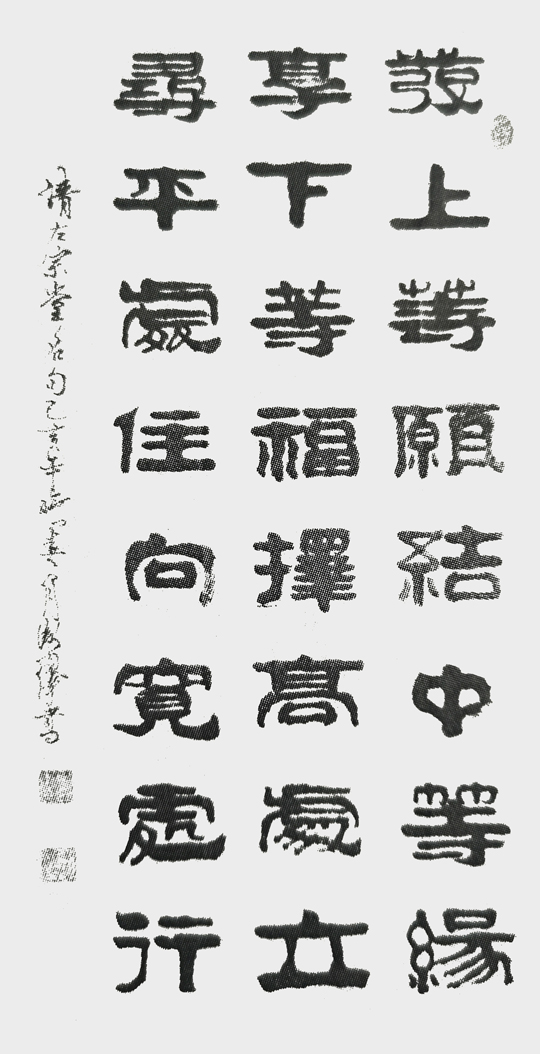 發上等願結中等緣
享下等福擇高處立
尋平處住向寬處行
清左宗棠名句己亥年
書